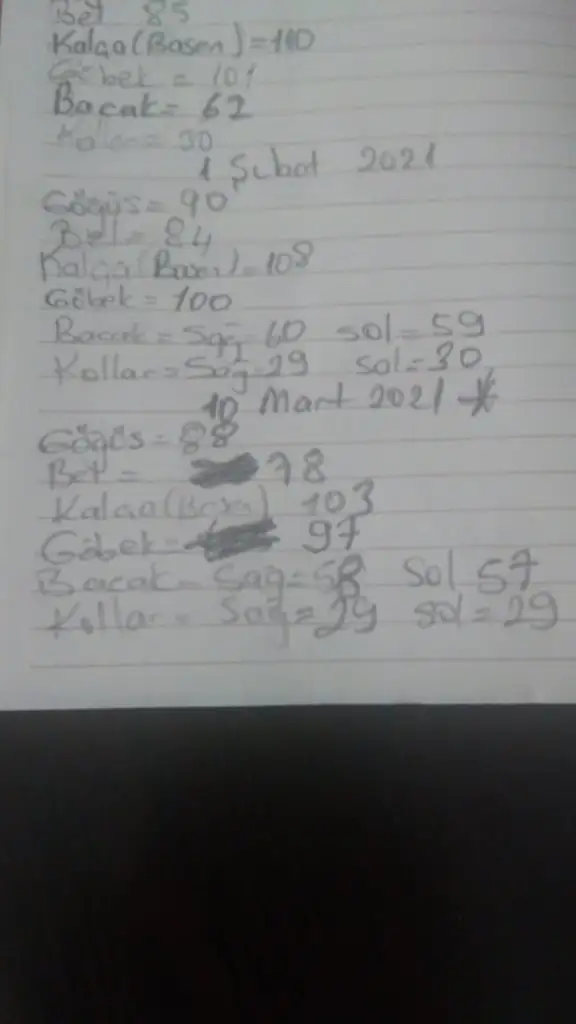 Bel 85
Kalça (Basen) = 110
Göbek = 101
Bacak = 62
Kollar = 30
1 Şubat 2021
Göğüs = 90
Bel = 84
Kalça (Basen) = 108
Göbek = 100
Bacak = Sağ 60 sol = 59
Kollar = Sağ 29 sol = 30
10 Mart 2021
Göğüs = 88
Bel = 78
Kalça (Basen) 103
Göbek = 97
Bacak = Sağ = 58 Sol 57
Kollar = Sağ = 29 sol = 29